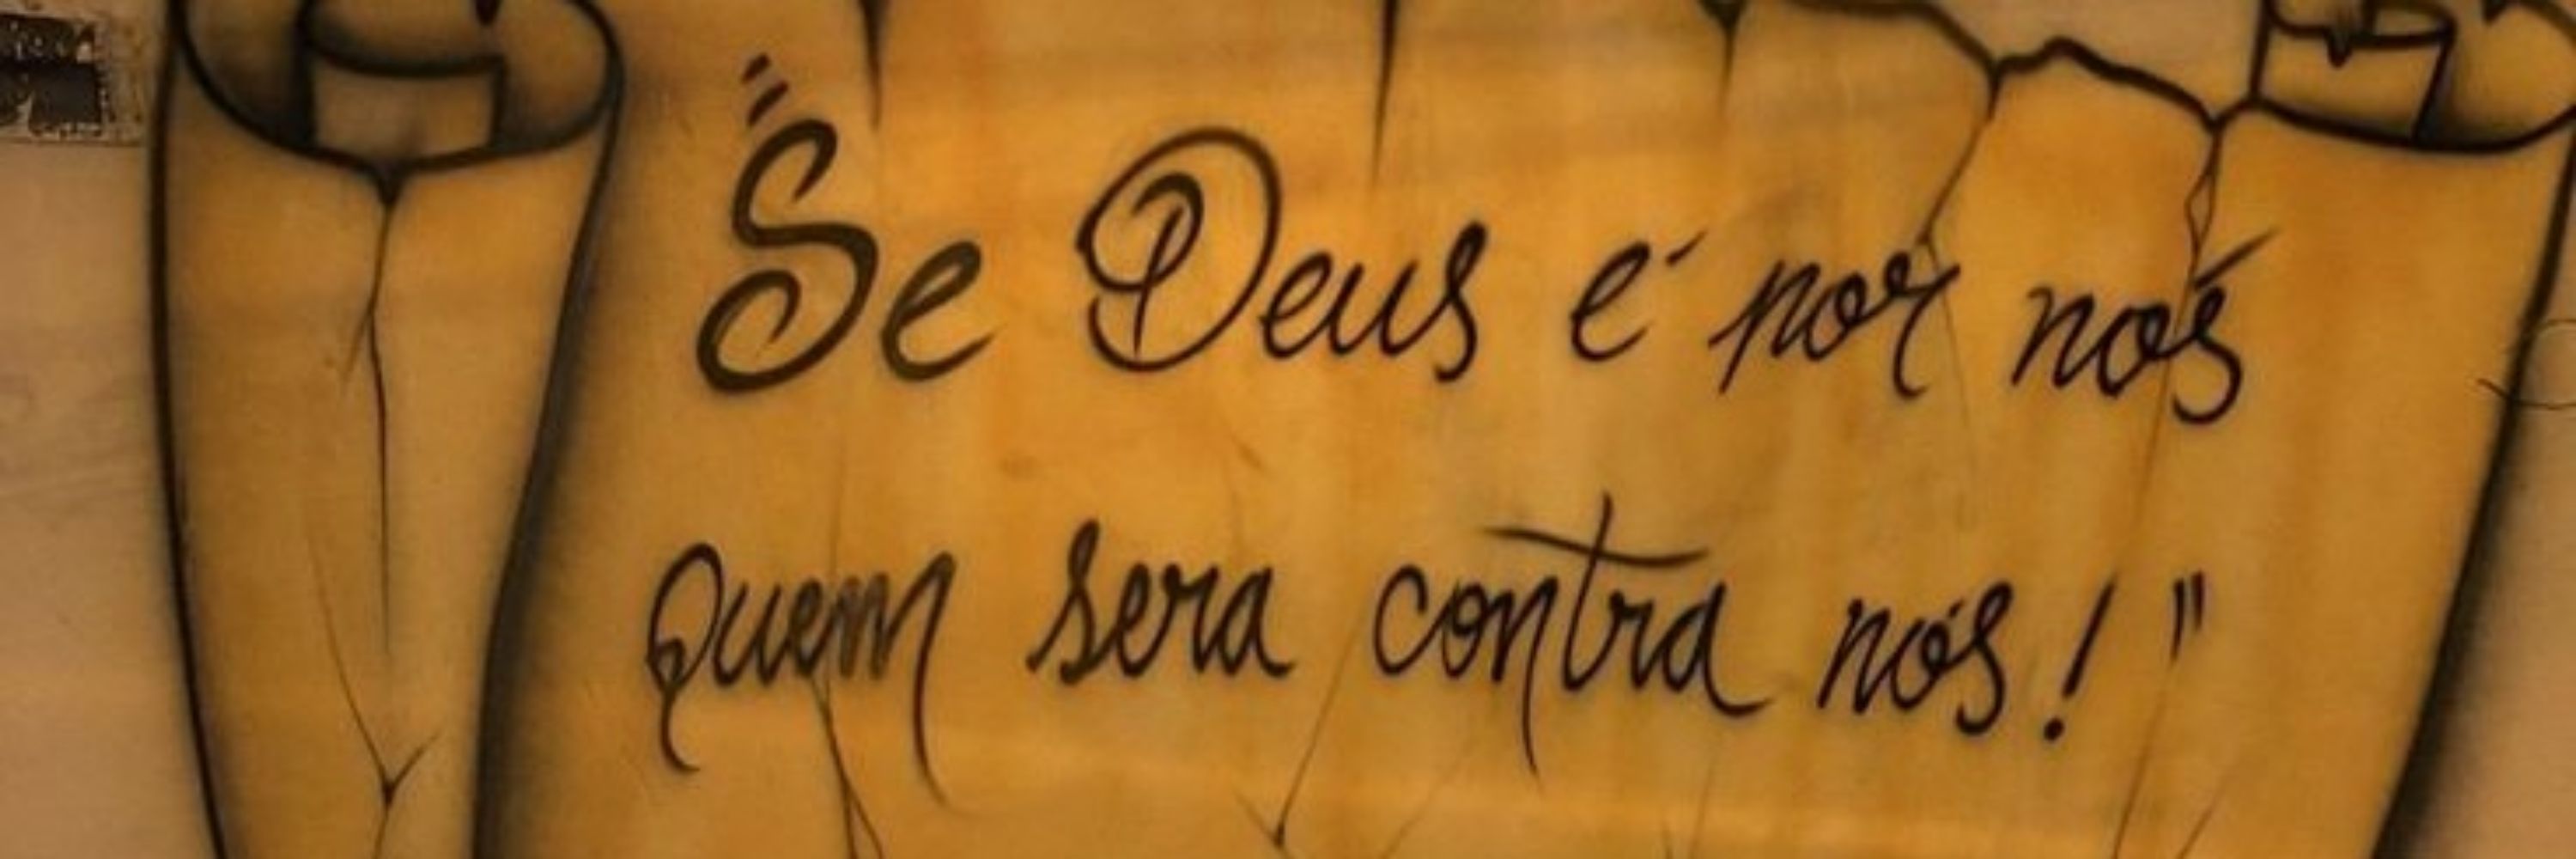 "Se Deus é por nós
quem sera contra nós!"